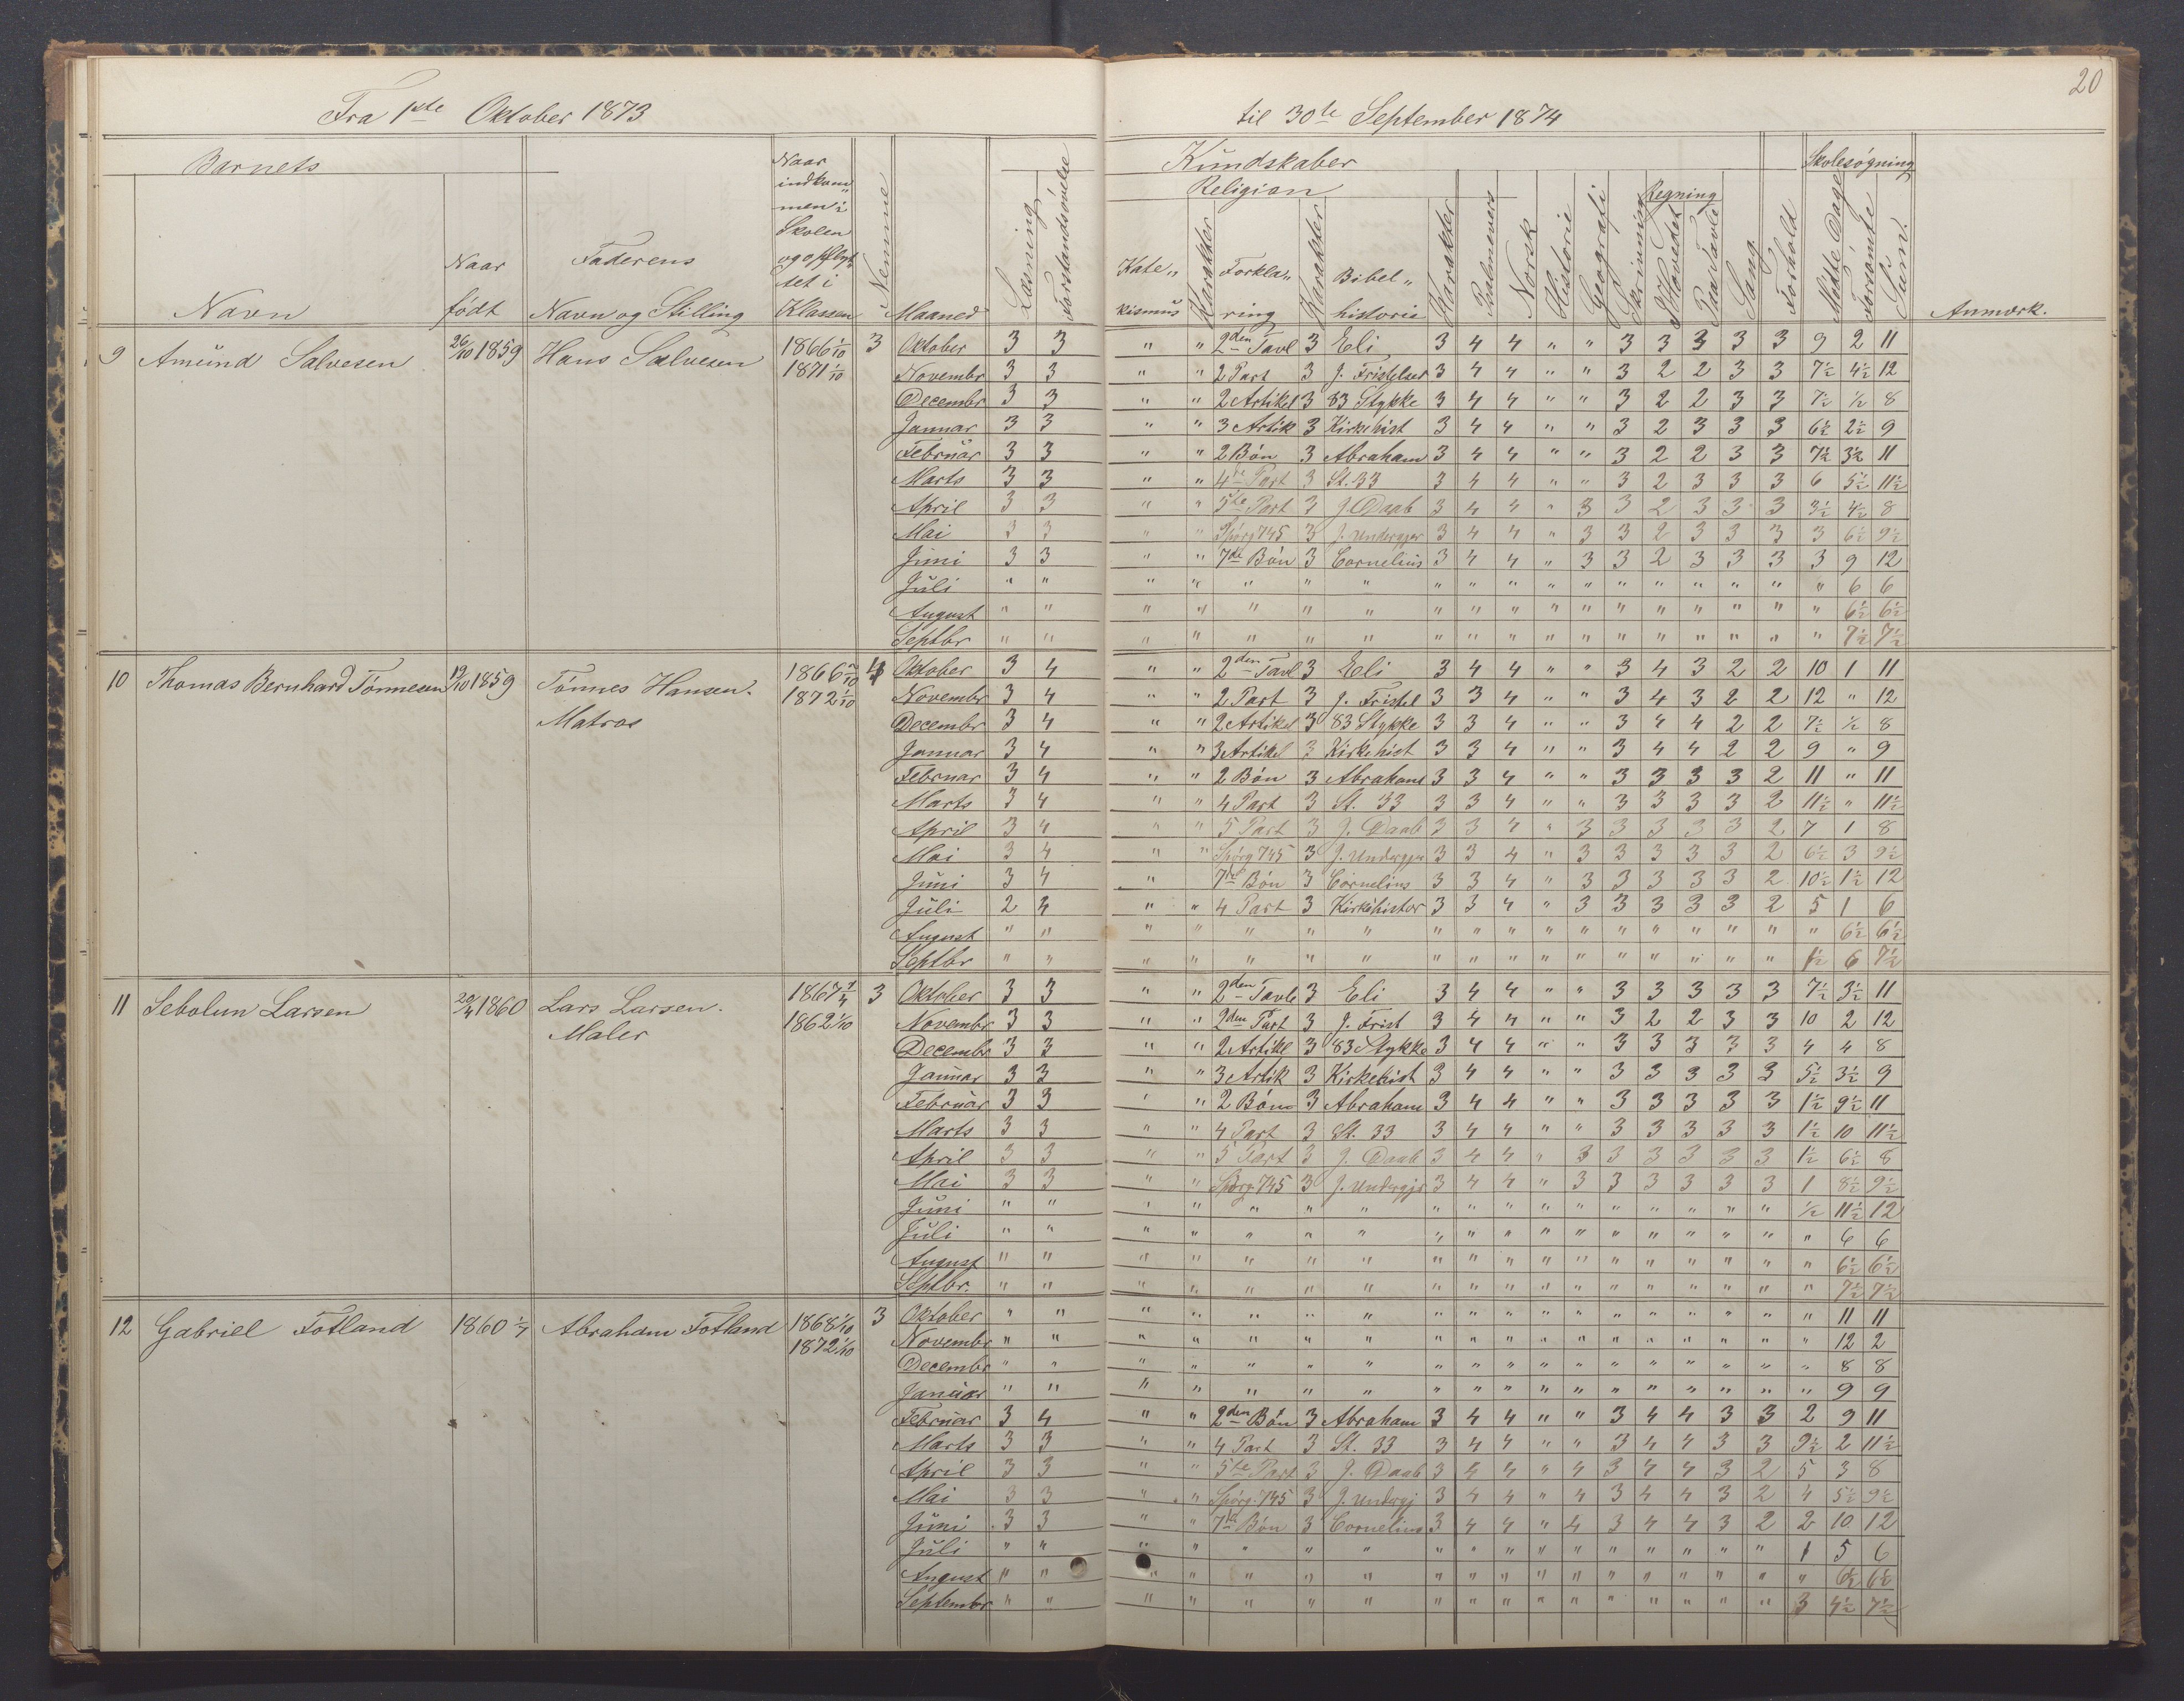 20
Fra 1ste Oktober 1873 til 30te September 1874
Barnets Kundskaber Skolesøgning
Religion Regning
Navn Naar født Faderens Navn og Stilling Naar indkommen i Skolen og opflyttet i Klassen Nemme Maaned Læsning Forstandsøvelse Kate„kismus Karakter Forkla„ring Karakter Bibel„historie Karakter Psalmevers Norsk Historie Geografi Skrivning I Hovedet Paa Tavle Sang Forhold Mødte Dage Forsømte Sum. Anmærk.
9 Amund Salvesen 26/10 1859 Hans Salvesen 1866 1/10 3 Oktober 3 3 " " 2den Tavl 3 Eli 3 4 4 " " 3 3 3 3 3 9 2 11
1871 1/10 Novembr 3 3 " " 2 Part 3 J. Fristelser 3 4 4 " " 3 2 2 3 3 7½ 4½ 12
Decembr 3 3 " " 2 Artikel 3 83 Stykke 3 4 4 " " 3 2 2 3 3 7½ ½ 8
Januar 3 3 " " 3 Artik 3 Kirkehist 3 4 4 " " 3 2 3 3 3 6½ 2½ 9
Februar 3 3 " " 2 Bøn 3 Abraham 3 4 4 " " 3 2 2 3 3 7½ 3½ 11
Marts 3 3 " " 4de Part 3 St. 33 3 4 4 " " 3 2 3 3 3 6 5½ 11½
April 3 3 " " 5te Part 3 J. Daab 3 4 4 " 3 3 2 3 3 3 3½ 4½ 8
Mai 3 3 " " Spørg 745 3 J. Undergjer 3 4 4 " 3 3 2 3 3 3 3 6½ 9½
Juni 3 3 " " 7de Bøn 3 Cornelius 3 4 4 " 3 3 2 3 3 3 3 9 12
Juli " " " " " " " " " " " " " " " " " " 6 6
August " " " " " " " " " " " " " " " " " " 6½ 6½
Septbr " " " " " " " " " " " " " " " " " " 7½ 7½
10 Thomas Bernhard Tønnesen 19/10 1859 Tønnes Hansen. 1866 4 Oktober 3 4 " " 2den Tavl 3 Eli 3 4 4 " " 3 4 3 2 2 10 1 11
Matros 1872 1/10 Novembr 3 4 " " 2 Part 3 J. Fristel 3 3 4 " " 3 4 3 2 2 12 " 12
Decembr 3 4 " " 2 Artikel 3 83 Stykke 3 3 4 " " 3 4 4 2 2 7½ ½ 8
Januar 3 4 " " 3 Artikel 3 Kirkehist 3 3 4 " " 3 4 4 2 2 9 " 9
Februar 3 4 " " 2 Bøn 3 Abraham 3 3 4 " " 3 3 3 3 2 11 " 11
Marts 3 4 " " 4 Part 3 St. 33 3 3 4 " " 3 3 3 3 2 11½ " 11½
April 3 4 " " 5 Part 3 J. Daab 3 3 4 " 3 3 3 3 3 2 7 1 8
Mai 3 4 " " Spørg 745 3 J. Undergjer 3 3 4 " 3 3 3 3 3 2 6½ 3 9½
Juni 3 4 " 7de Bøn 3 Cornelius 3 3 4 " 3 3 3 3 3 2 10½ 1½ 12
Juli 2 4 " " 4 Part 3 Kirkehistor 3 3 4 " 3 3 3 3 3 2 5 1 6
August " " " " " " " " " " " " " " " " " " 6½ 6½
Septbr " " " " " " " " " " " " " " " " " 1½ 6 7½
11 Sebolun Larsen 20/4 1860 Lars Larsen. 1867 3 Oktober 3 3 " " 2den Tavle 3 Eli 3 4 4 " " 3 3 3 3 3 7½ 3½ 11
Maler 1862 1/10 Novembr 3 3 " " 2den Part 3 J. Frist 3 4 4 " " 3 2 2 3 3 10 2 12
Decembr 3 3 " " 2 Artikl 3 83 Stykke 3 4 4 " " 3 3 3 3 3 4 4 8
Januar 3 3 " " 3 Artik 3 Kirkehist 3 4 4 " " 3 3 3 3 3 5½ 3½ 9
Februar 3 3 " " 2 Bøn 3 Abraham 3 4 4 " " 3 3 3 3 3 1½ 9½ 11
Marts 3 3 " " 4 Part 3 St. 33 3 4 4 " " 3 3 3 3 3 1½ 10 11½
April 3 3 " " 5 Part 3 J. Daab 3 4 4 " 3 3 3 3 3 3 1½ 6½ 8
Mai 3 3 " " Spørg. 745 3 J. Undergjr 3 4 4 " 3 3 3 3 3 3 1 8½ 9½
Juni " " " " " " " " " " " " " " " " " ½ 11½ 12
Juli " " " " " " " " " " " " " " " " " " 6 6
August " " " " " " " " " " " " " " " " " " 6½ 6½
Septbr. " " " " " " " " " " " " " " " " " " 7½ 7½
12 Gabriel Fotland 1860 Abraham Fotland 1868 1/10 3 Oktober " " " " " " " " " " " " " " " " " " 11 11
1872 1/10 Novembr " " " " " " " " " " " " " " " " " " 12 2
Decembr " " " " " " " " " " " " " " " " " " 8 8
Januar " " " " " " " " " " " " " " " " " " 9 9
Februar 3 4 " " 2den Bøn 3 Abraham 3 4 4 " " 3 4 4 3 3 2 9 11
Marts 3 3 " " 4 Part 3 St. 33 3 4 4 " " 3 4 4 3 3 9½ 2 11½
April 3 3 " " 5te Part 3 J. Daab 3 4 4 " 4 3 4 4 3 2 5 3 8
Mai 3 3 " " Spørg. 745 3 J. Undergj 3 4 4 " 4 3 4 4 3 2 4 5½ 9½
Juni 3 3 " " 7de Bøn 3 Cornelius 3 4 4 " 4 3 4 4 3 2 2 10 12
Juli " " " " " " " " " " " " " " " " " 1 5 6
August " " " " " " " " " " " " " " " " " " 6½ 6½
Septembr " " " " " " " " " " " " " " " " " 3 4½ 7½